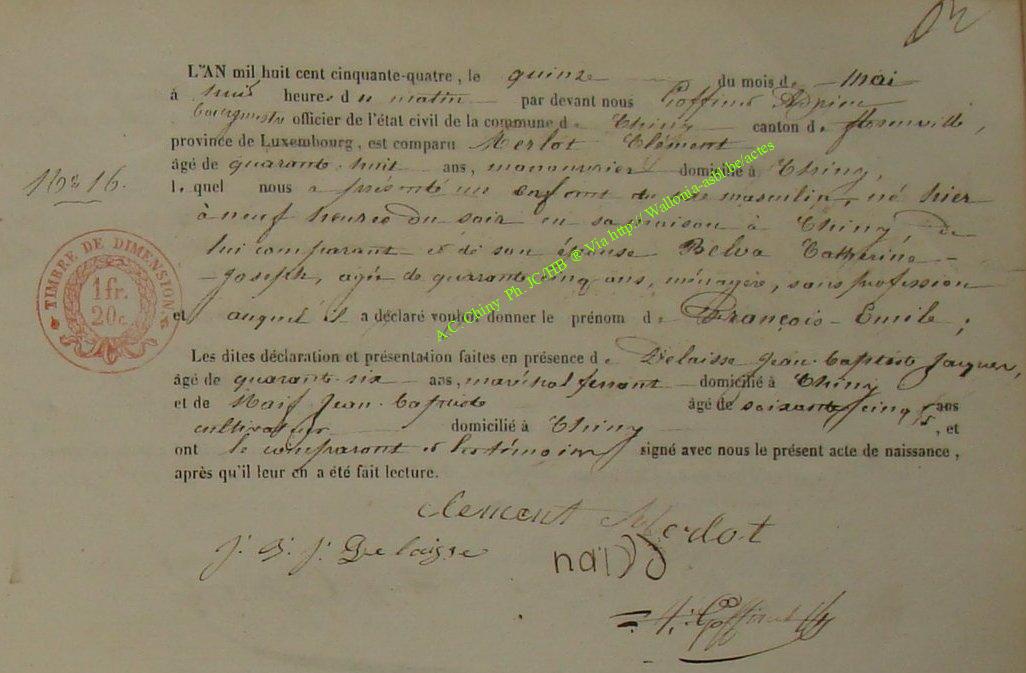 L'AN mil huit cent cinquante-quatre, le quinze du mois de mai
à huit heures du matin par devant nous Goffinet Adrien
bourgmestre officier de l'état civil de la commune de Chiny canton de florenville,
province de Luxembourg, est comparu Merlot Clément
âgé de quarante-huit ans, manouvrier domicilié à Chiny,
lequel nous a présenté un enfant de sexe masculin, né hier
No 16.
à neuf heures du soir en sa maison à Chiny de
lui comparant et de son épouse Belva Catherine-
Joseph, agée de quarante cinq ans, ménagère, sans profession
et auquel il a déclaré vouloir donner le prénom de François-Emile;
TIMBRE DE DIMENSION.
1 fr.
20 c.
Les dites déclaration et présentation faites en présence de Delaisse Jean-Baptiste Jacques,
âgé de quarante-six ans, maréchal ferrant domicilié à Chiny
et de Naif Jean-Baptiste âgé de soixante cinq ans
cultivateur domicilié à Chiny, et
ont le comparant et les témoins signé avec nous le présent acte de naissance,
après qu'il leur en a été fait lecture.
Clement Merlot
J. B. J. Delaisse
naif
A. Goffinet
A.C. Chiny Ph. JC/HB @ Via http://Wallonia-asbl.be/actes